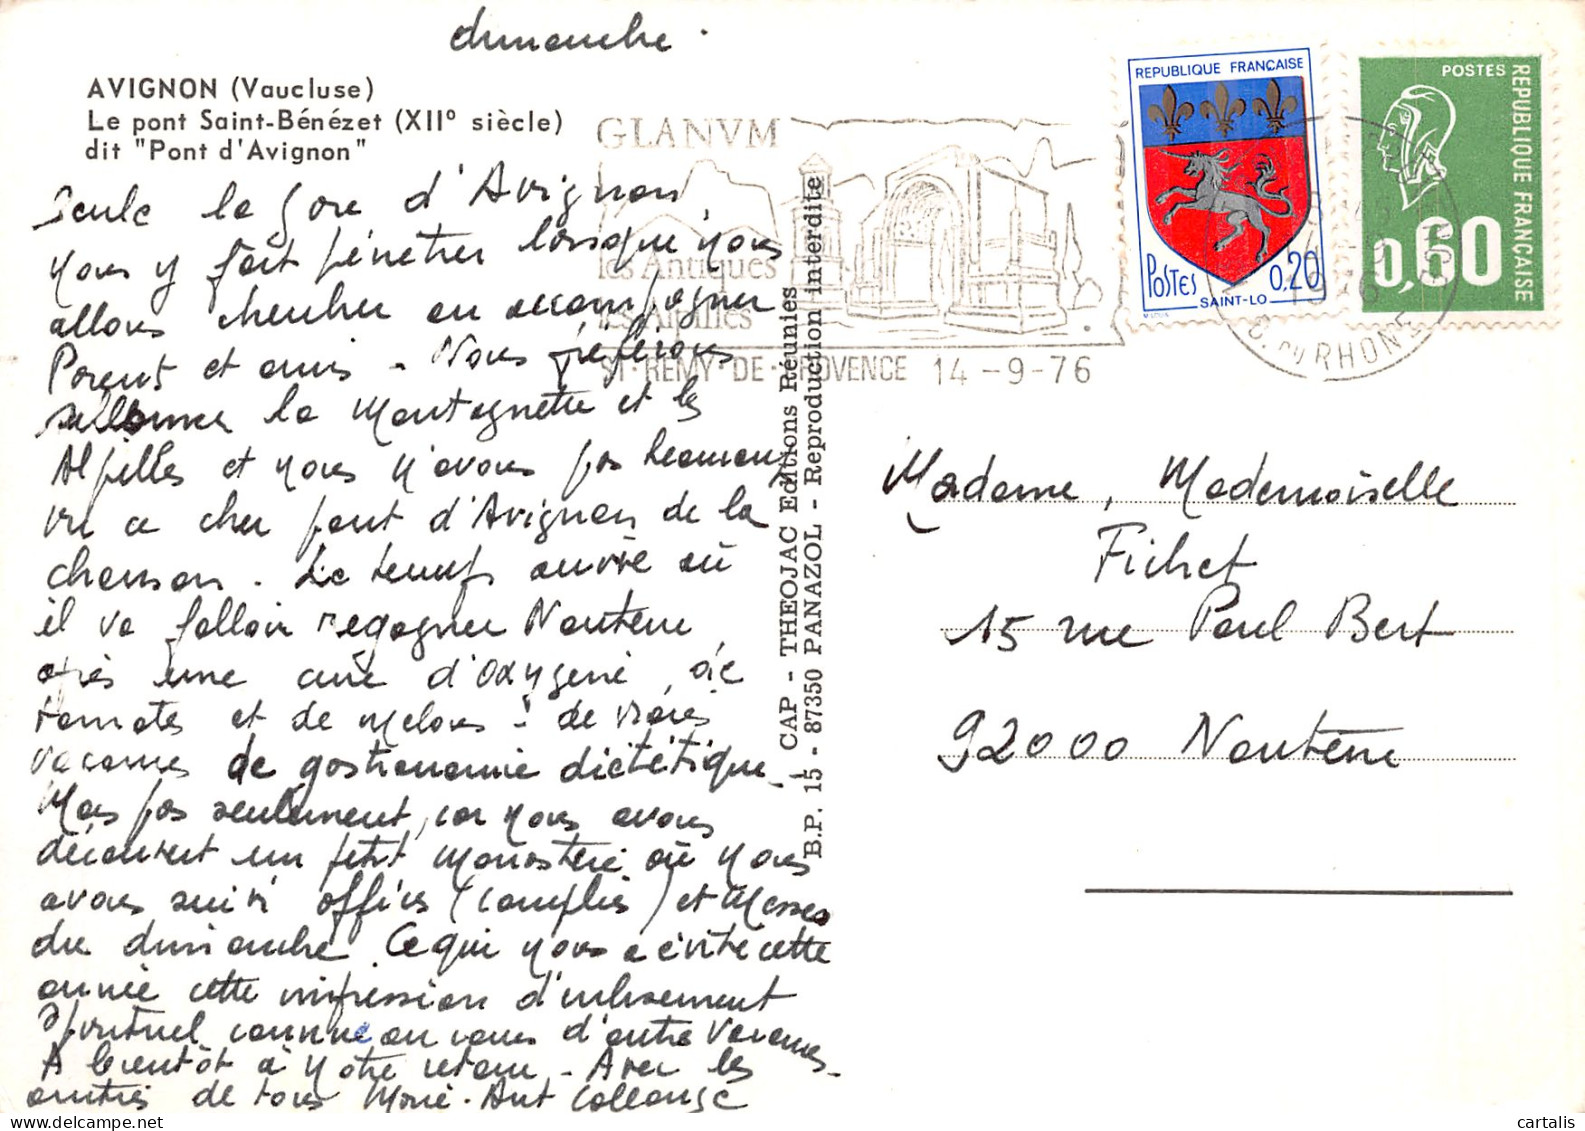 dimanche.
AVIGNON (Vaucluse)
Le pont Saint-Bénézet (XII° siècle)
dit "Pont d'Avignon"
Seule la gare d'Avignon,
nous y fait pénétrer lorsque nous
allons chercher ou accompagner
Parents et amis - Nous préférons
sillonner la Montagnette et les
Alpilles et nous n'avons pas beaucoup
vu ce cher pont d'Avignon de la
chanson. Le temps arrive où
il va falloir regagner Nanterre
après une cure d'oxygène, de
tomates et de melons : de vraies
vacances de gastronomie diététique -
Mais pas seulement, car nous avons
découvert un petit monastère où nous
avons suivi offices (complies) et Messes
du dimanche. Ce qui nous a évité cette
année cette impression d'enlisement
spirituel connue au cours d'autres vacances -
A bientôt à notre retour - Avec les
amitiés de tous Marie-Ant Collange
GLANVM
les Antiques
les Alpilles
ST-REMY-DE-PROVENCE 14-9-76
REPUBLIQUE FRANÇAISE
POSTES 0,20
SAINT-LO
POSTES
REPUBLIQUE FRANÇAISE
0,60
14-9
1976
B. DU RHONE
CAP - THEOJAC Editions Réunies
B.P. 15 - 87350 PANAZOL - Reproduction interdite
Madame, Mademoiselle
Fichet
15 rue Paul Bert
92000 Nanterre
cartalis